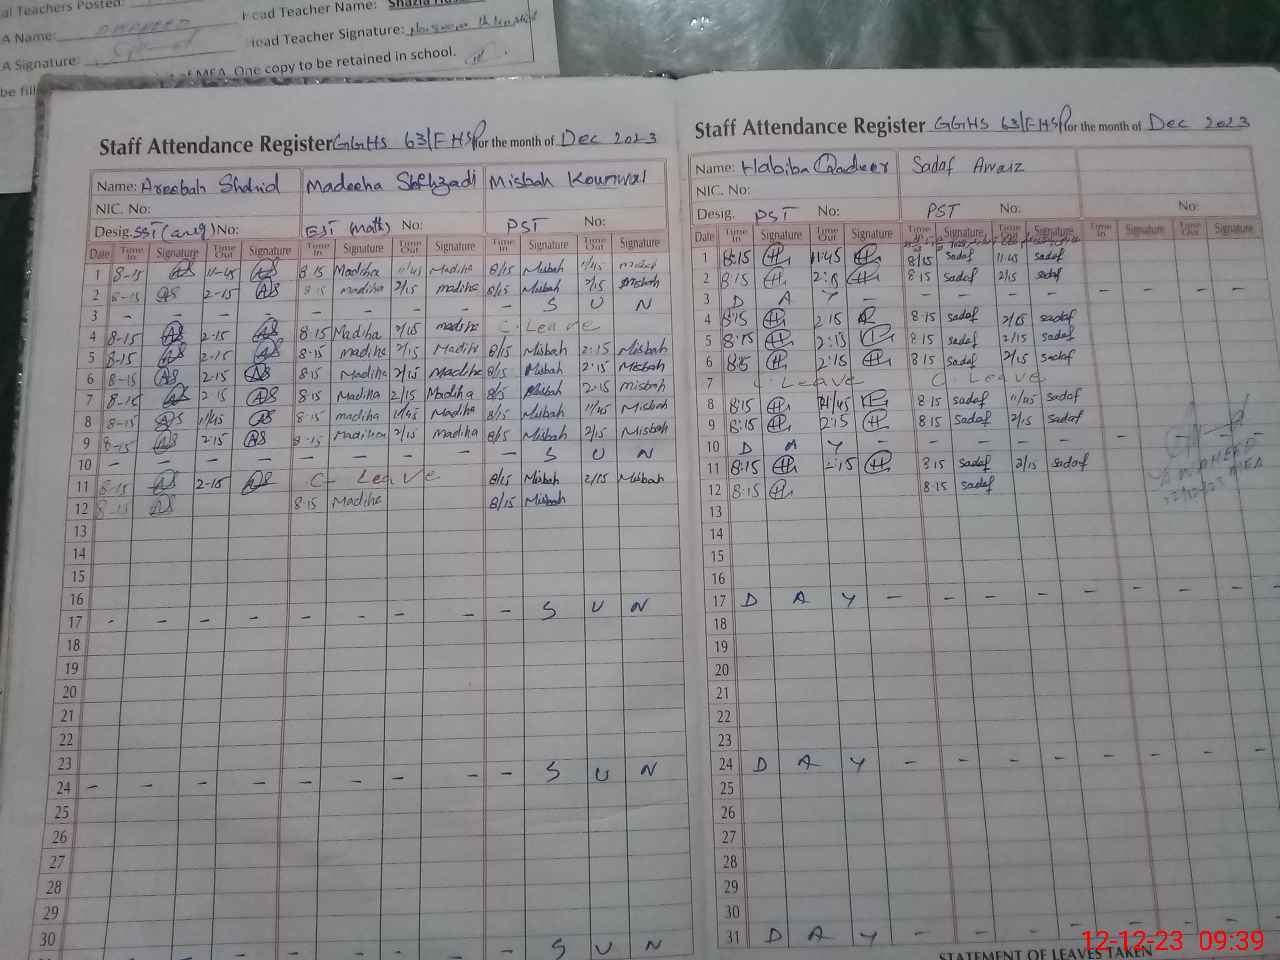 al Teachers Posted:
Head Teacher Name: Shazia
A Name:
Head Teacher Signature:
A Signature:
of MEA. One copy to be retained in school.
be fill
Staff Attendance Register GGHS 63/EHSP for the month of Dec 2023
Name: Areebah Shahid Madeeha Shehzadi Misbah Kounwal
NIC. No:
Desig. SST (arq) No: EST (math) No: PST No:
Date Time In Signature Time Out Signature Time In Signature Time Out Signature Time In Signature Time Out Signature
1 8-15 AS 11-45 AS 8:15 Madiha 11/45 Madiha 8/15 Misbah 11/45 Misbah
2 8-15 AS 2-15 AS 8:15 madiha 2/15 madiha 8/15 Misbah 2/15 Misbah
3 - - - - - - - - - S U N
4 8-15 AS 2-15 AS 8:15 Madiha 2/15 madiha C. Leave
5 8-15 AS 2-15 AS 8:15 madiha 2/15 Madiha 8/15 Misbah 2:15 Misbah
6 8-15 AS 2-15 AS 8:15 Madiha 2/15 Madiha 8/15 Misbah 2:15 Misbah
7 8-15 AS 2-15 AS 8:15 Madiha 2/15 Madiha 8/15 Misbah 2:15 misbah
8 8-15 AS 11/45 AS 8:15 madiha 11/45 Madiha 8/15 Misbah 11/45 Misbah
9 8-15 AS 2-15 AS 8:15 Madiha 2/15 madiha 8/15 Misbah 2/15 Misbah
10 - - - - - - - - - S U N
11 8-15 AS 2-15 AS C Leave 8/15 Misbah 2/15 Misbah
12 8-15 AS 8:15 Madiha 8/15 Misbah
13
14
15
16
17 - - - - - - - - - S U N
18
19
20
21
22
23
24 - - - - - - - - S U N
25
26
27
28
29
30
- - - - - - S U N
Staff Attendance Register GGHS 63/EHSP for the month of Dec 2023
Name: Habiba Qadeer Sadaf Awaiz
NIC. No:
Desig. PST No: PST No: No:
Date Time In Signature Time Out Signature Time In Signature Time Out Signature Time In Signature Time Out Signature
1 8:15 H 11:45 H 8/15 sadaf 11:45 sadaf
2 8:15 H 2:15 H 8:15 sadaf 2/15 sadaf
3 D A Y - - - - - - - - -
4 8:15 H 2:15 8:15 sadaf 2/15 sadaf
5 8:15 H 2:15 8:15 sadaf 2/15 sadaf
6 8:15 H 2:15 H 8:15 sadaf 2/15 sadaf
7 C. Leave C. Leave
8 8:15 H 11/45 8:15 sadaf 11/45 sadaf
9 8:15 H 2:15 H 8:15 sadaf 2/15 sadaf
10 D A Y - - - - - - - - -
11 8:15 H 2:15 H 8:15 sadaf 2/15 sadaf
12 8:15 H 8:15 sadaf
13
14
15
16
17 D A Y - - - - - - - - -
18
19
20
21
22
23
24 D A Y - - - - - - - - -
25
26
27
28
29
30
31 D A Y - - - - -
STATEMENT OF LEAVES TAKEN
12-12-23 09:39